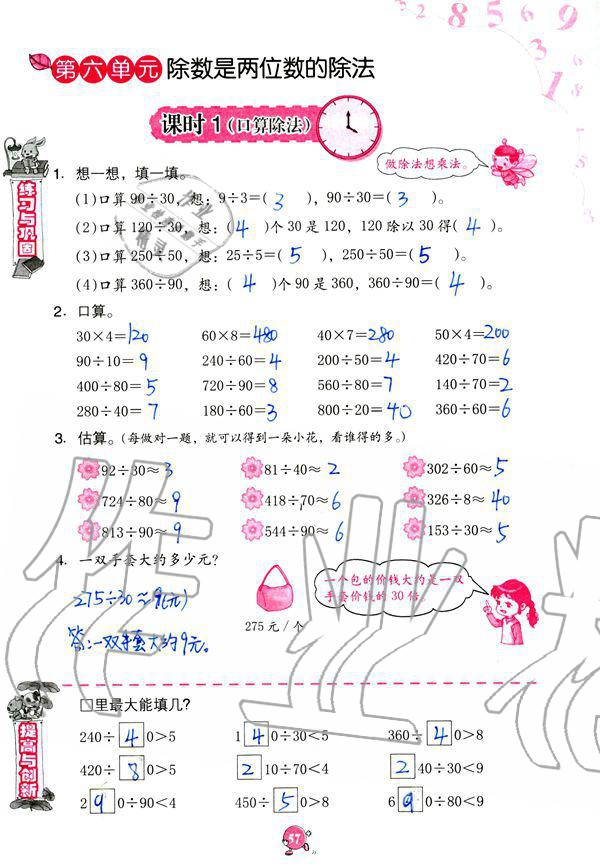 第六单元 除数是两位数的除法
课时1(口算除法)
做除法想乘法。
练习与巩固
1. 想一想，填一填。
(1)口算90÷30，想：9÷3=( 3 )，90÷30=( 3 )。
(2)口算120÷30，想：( 4 )个30是120，120除以30得( 4 )。
(3)口算250÷50，想：25÷5=( 5 )，250÷50=( 5 )。
(4)口算360÷90，想：( 4 )个90是360，360÷90=( 4 )。
2. 口算。
30×4=120 60×8=480 40×7=280 50×4=200
90÷10=9 240÷60=4 200÷50=4 420÷70=6
400÷80=5 720÷90=8 560÷80=7 140÷70=2
280÷40=7 180÷60=3 800÷20=40 360÷60=6
3. 估算。(每做对一题，就可以得到一朵小花，看谁得的多。)
92÷30≈3 81÷40≈2 302÷60≈5
724÷80≈9 418÷70≈6 326÷8≈40
813÷90≈9 544÷90≈6 153÷30≈5
4. 一双手套大约多少元?
275÷30≈9(元)
答:一双手套大约9元。
275元/个
一个包的价钱大约是一双
手套价钱的30倍。
提高与创新
□里最大能填几?
240÷40>5 140÷30<5 360÷40>8
420÷80>5 210÷70<4 240÷30<9
290÷90<4 450÷50>8 690÷80<9
57
作业精